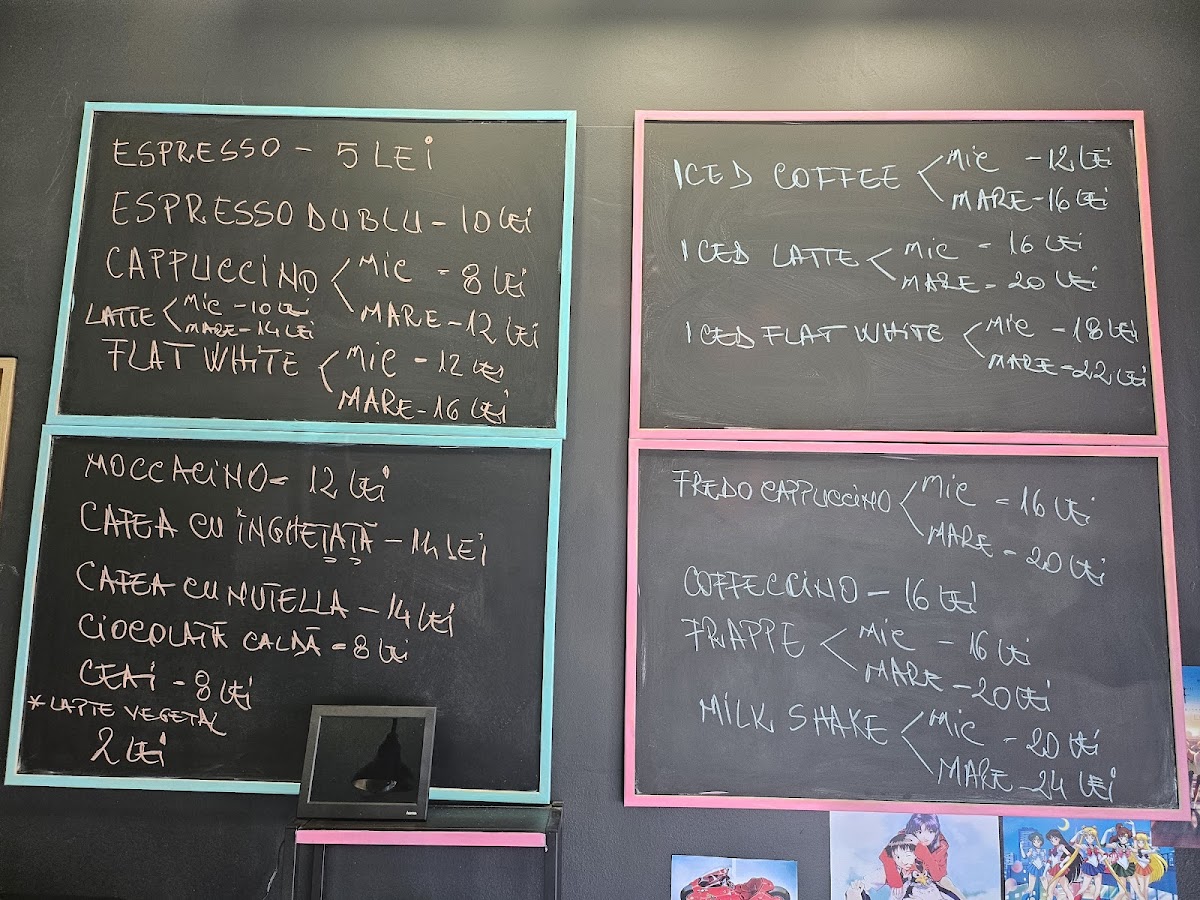 ESPRESSO - 5 LEI
ESPRESSO DUBLU - 10 LEI
CAPPUCCINO < MIC - 8 LEI
MARE - 12 LEI
LATTE < MIC - 10 LEI
MARE - 14 LEI
FLAT WHITE < MIC - 12 LEI
MARE - 16 LEI
MOCCACINO - 12 LEI
CAFEA CU ÎNGHEȚATĂ - 14 LEI
CAFEA CU NUTELLA - 14 LEI
CIOCOLATĂ CALDĂ - 8 LEI
CEAI - 8 LEI
* LAPTE VEGETAL
2 LEI
ICED COFFEE < MIC - 12 LEI
MARE - 16 LEI
ICED LATTE < MIC - 16 LEI
MARE - 20 LEI
ICED FLAT WHITE < MIC - 18 LEI
MARE - 22 LEI
FREDO CAPPUCCINO < MIC - 16 LEI
MARE - 20 LEI
COFFECCINO - 16 LEI
FRAPPE < MIC - 16 LEI
MARE - 20 LEI
MILK SHAKE < MIC - 20 LEI
MARE - 24 LEI
hama